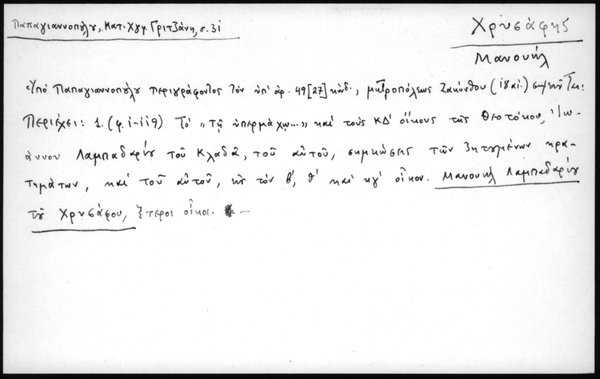 Παπαγιαννοπούλου, Κατ. Χγφ. Γριτζάνη, σ. 31
Χρυσάφης
Μανουήλ
«Υπό Παπαγιαννοπούλου περιγράφοντος τον υπ' αρ. 49 [27] κώδ., μητροπόλεως Ζακύνθου (ιζ΄ αι.)
Περιέχει: 1. (φ. 1-119) Το «Τῇ ὑπερμάχῳ...» καὶ τοὺς ΚΔ' οἴκους τῆς Θεοτόκου, Ἰω-
άννου Λαμπαδαρίου τοῦ Κλαδᾶ, τοῦ αὐτοῦ, σημειώσεις τῶν ζητημένων κρα-
τημάτων, καὶ τοῦ αὐτοῦ, εἰς τὸν β', θ' καὶ κγ' οἶκον. Μανουὴλ Λαμπαδαρίου
τοῦ Χρυσάφου, ἕτεροι οἶκοι. —